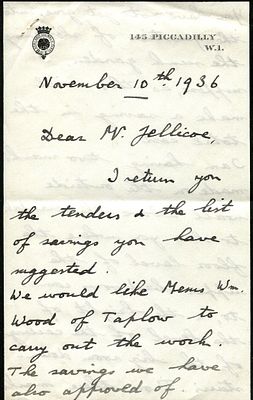 145 PICCADILLY
W.1.
November 10th 1936
Dear Mr. Jellicoe,
I return you
the tenders & the list
of savings you have
suggested.
We would like Messrs Wm.
Wood of Taplow to
carry out the work.
The savings we have
also approved of.